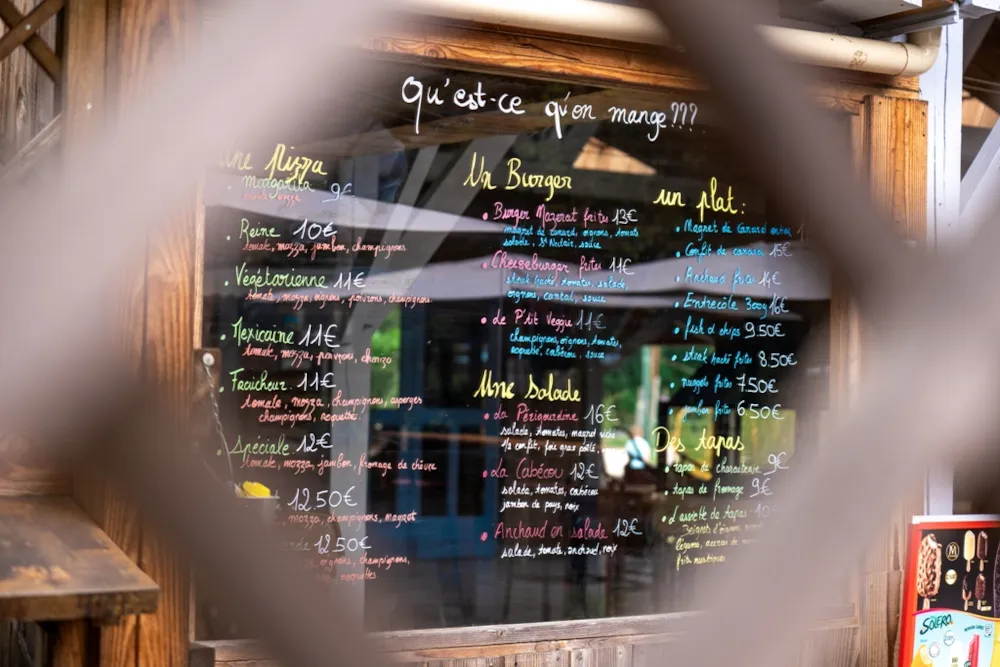 Qu'est-ce qu'on mange???
Une Pizza
Margarita 9€
Reine 10€
tomate, mozza, jambon, champignons
Végétarienne 11€
tomate, mozza, oignons, poivrons, champignons
Mexicaine 11€
tomate, mozza, poivrons, chorizo
Fraîcheur 11€
tomate, mozza, champignons, asperges
champignons, roquette
Spéciale 12€
tomate, mozza, jambon, fromage de chèvre
12.50€
mozza, champignons, magret
12.50€
oignons, champignons,
Un Burger
Burger Mazerat frites 13€
magret de canard, oignons, tomate
salade, St Nectaire, sauce
Cheeseburger frites 11€
steak haché, tomates, salade,
oignons, cantal, sauce
Le P'tit Veggie 11€
champignons, oignons, tomates,
roquette, cabécou, sauce
Une Salade
La Périgourdine 16€
salade, tomates, magret
confit, foie gras poêlé,
La Cabécou 12€
salade, tomates, cabécou
jambon de pays, noix
Anchaud en salade 12€
salade, tomate, anchaud, noix
un plat:
Magret de Canard
Confit de canard 15€
Anchaud frites 14€
Entrecôte 300g 16€
fish & chips 9.50€
steak haché frites 8.50€
nuggets frites 7.50€
jambon frites 6.50€
Des tapas
tapas de charcuterie 9€
tapas de fromage 9€
assiette de tapas 10
Beignets d'oignons
légume,
SOLERO